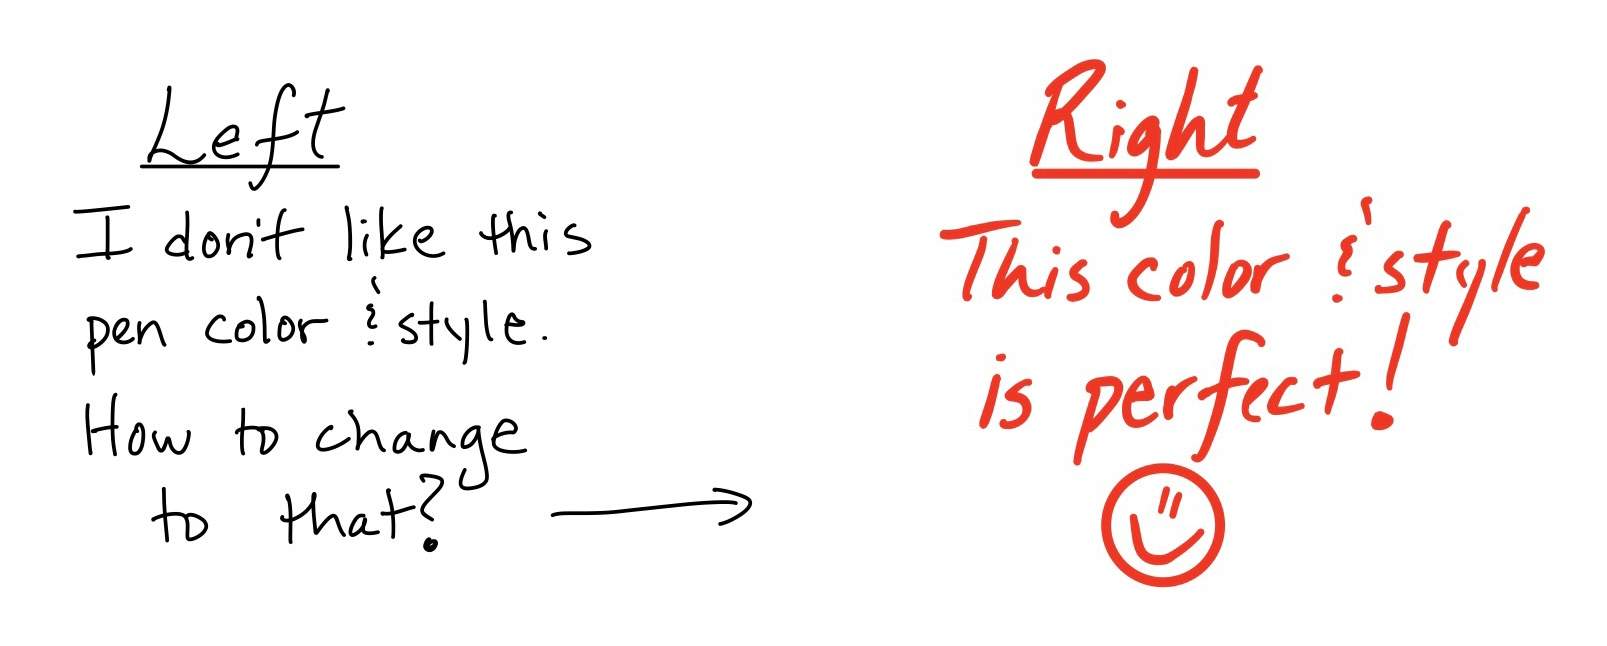 Left
I don't like this
pen color & style.
How to change
to that?
Right
This color & style
is perfect!